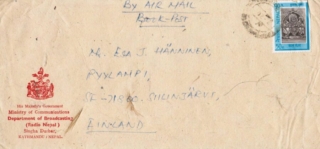 By AIR MAIL
Book-Post
Mr. Esa J. HÄNNINEN,
PYYLAMPI,
SF-
FINLAND
His Majesty's Government
Ministry of Communications
Department of Broadcasting
(Radio Nepal)
Singha Durbar,
KATHMANDU (NEPAL)